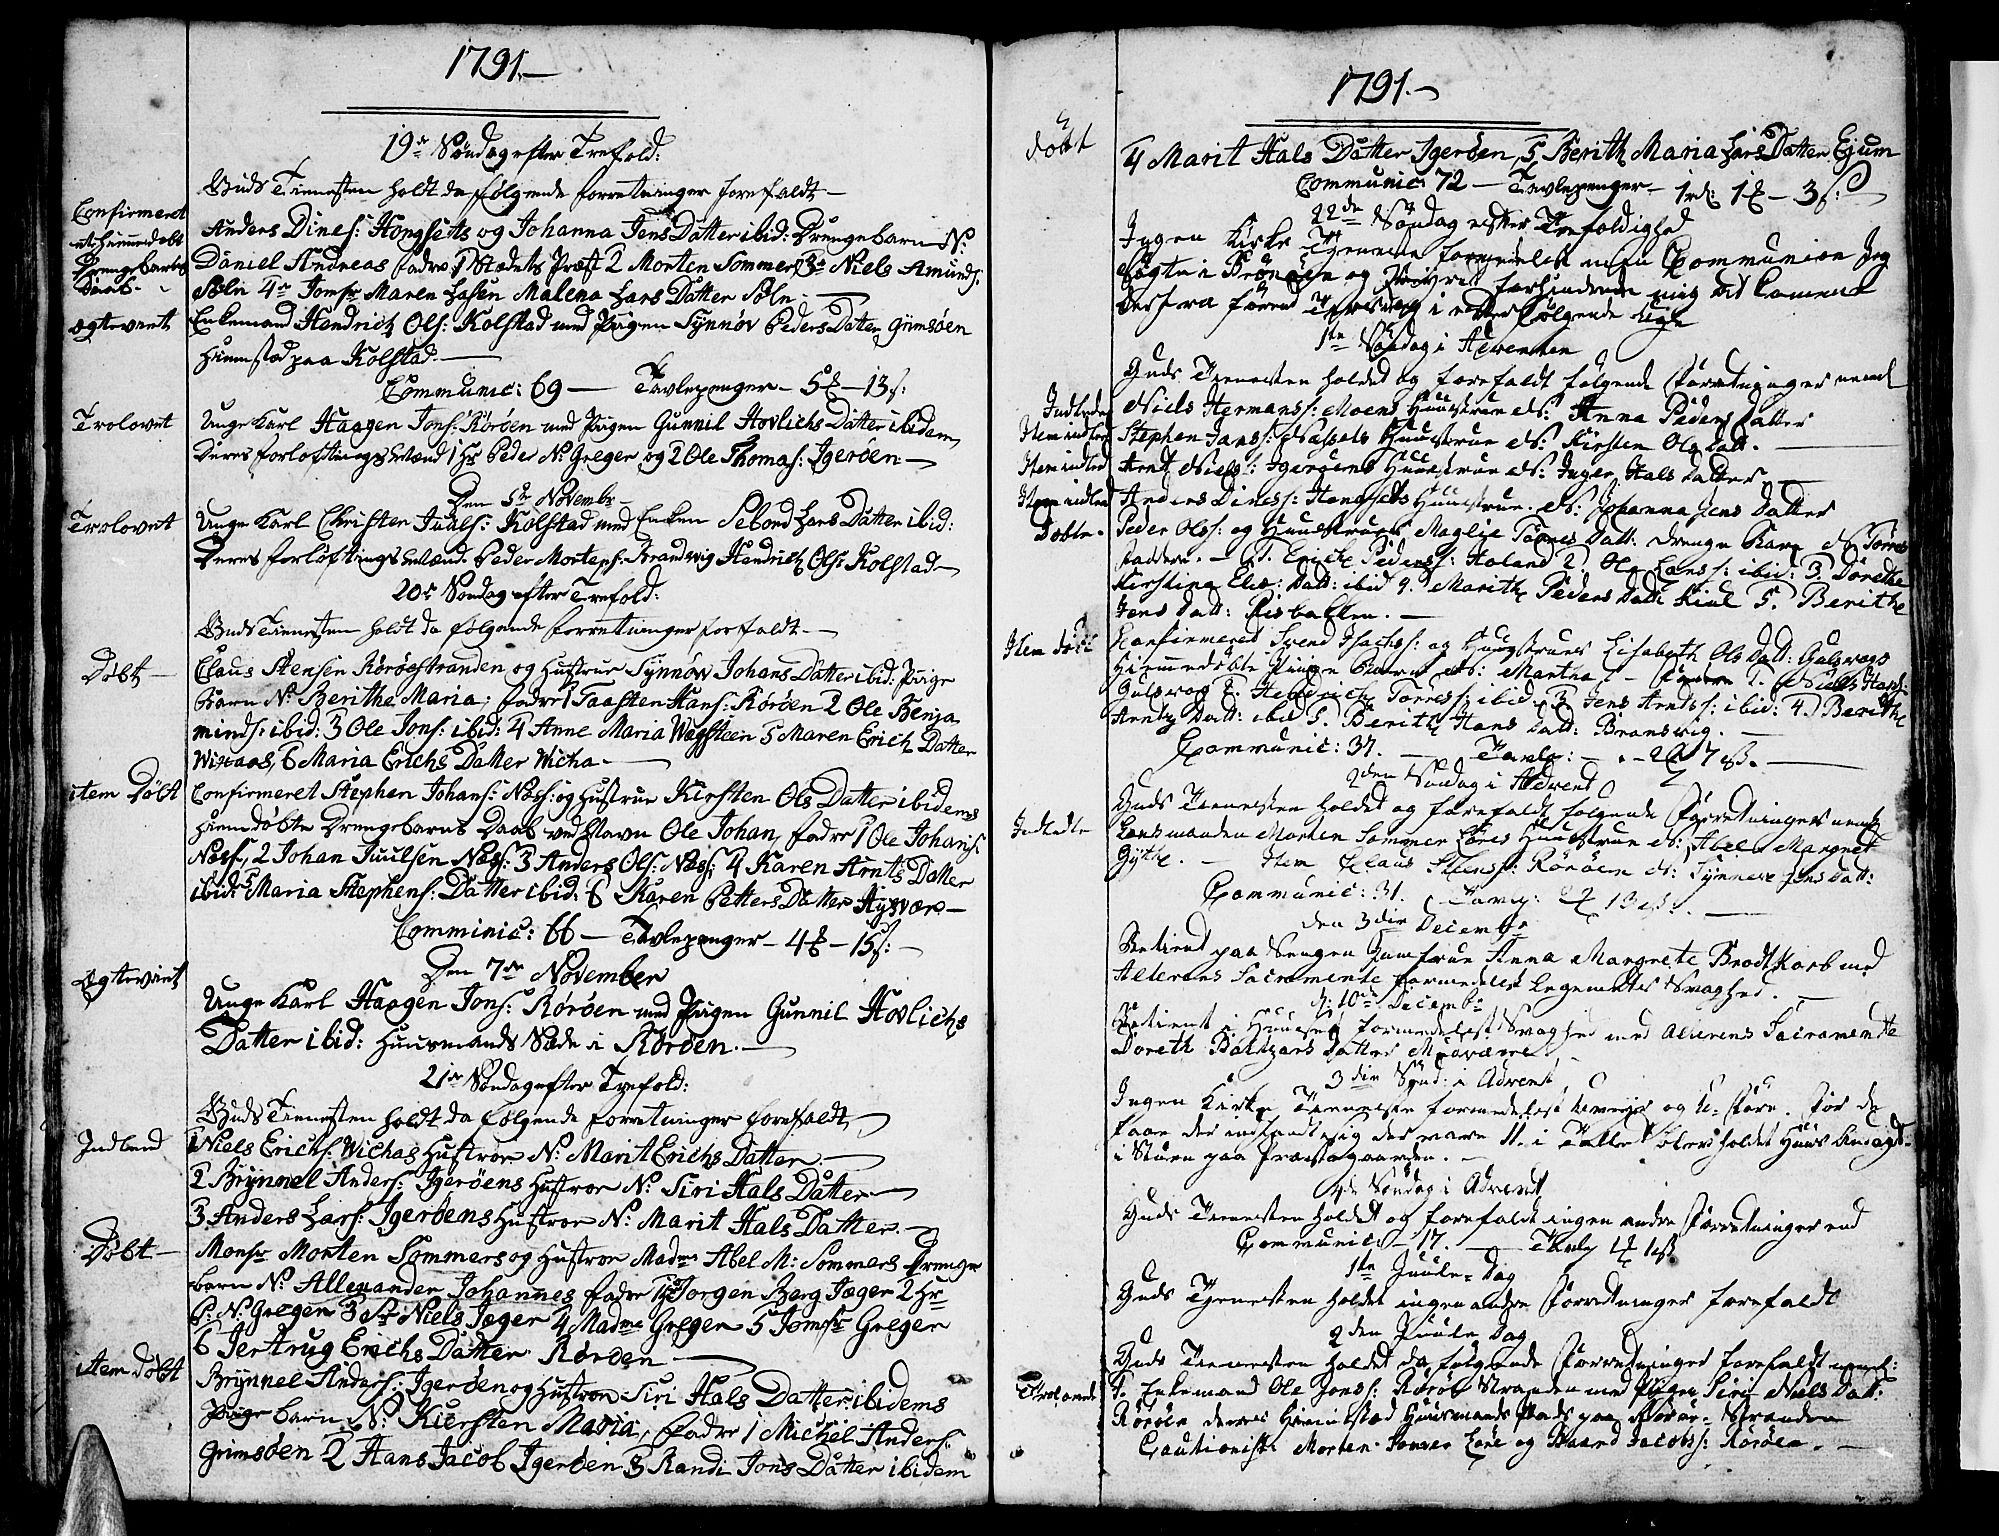 1791.—
19de Søndag efter Trefold:
Guds Tienesten holdt da følgende forretninger forefaldt—
Confirmeret
et hiemmedøbt
Drengebarns
Daab.
Anders Dines: Hongsets og Johanna Jens Datter ibid: Drengebarn N:
Daniel Andreas fadre 1 Stædets Præst 2 Morten Sommer 3 Niels Amunds:
Søln 4 Jomfr Maren Hasen Malena Lars Datter Søln.—
Egteviet
Enkemand Hendrich Ols: Kolstad med Pigen Synnøv Peders Datter Grimsøen
Hiemsted paa Kolstad.—
Communic: 69 — Tavlepenger — 5 — 13 s:
Trolovet
Unge Karl Haagen Jons: Rørøen med Pigen Gunnil Hovlichs Datter ibidem
Deres forloftnings Mænd 1 Hr Peder N: Greger og 2 Ole Thomas: Igerøen—
Den 5te Novembr—
Trolovet
Unge Karl Christen Juuls: Kolstad med Enken Sebond Lars Datter ibid:
Deres forløftnings Mænd Peder Mortens: Brandsvig Hendrich Ols: Kolstad—
20de Søndag efter Trefold:
Guds Tienesten holdt da følgende forretninger forfaldt.—
Døbt—
Claus Stensen Rørøestranden og Hustrue Synnøv Johans Datter ibid: Pige
Barn N: Berithe Maria; fadre 1 Taasten Hans: Rørøen 2 Ole Benja
minds: ibid: 3 Ole Jons: ibid: 4 Anne Maria Wægsteen 5 Maren Erich Datter
Wistnæs, 6 Maria Erichs Datter Wicha—
item Døbt
Confirmeret Stephen Johans: Næss: og Hustrue Kirsten Ols Datter ibidems
Hiemdøbte Drengebarns Daab ved Navn Ole Johan, fadre 1 Ole Johans:
Næss, 2 Johan Juulsen Næss: 3 Anders Ols: Næss: 4 Karen Arnts Datter
ibid: 5 Maria Stephens: Datter ibid: 6 Karen Petters Datter Hysvær—
Comminic: 66 — Tavlepenger — 4 — 15 s:—
Den 7de November
Egteviet
Unge Karl Haagen Jons: Rørøen med Pigen Gunnil Hovlichs
Datter ibid: Huusmands Sæde i Rørøen.—
21de Søndag efter Trefold:
Guds Tienesten holdt da følgende forretninger forefaldt,
Indleed
1 Niels Erichs: Wichas Hustroe N: Marit Erichs Datter.—
2 Brynnel Anders: Igerøens Hustroe N: Siri Hals Datter—
3 Anders Lars: Igerøens Hustroe N: Marit Hals Datter.—
Døbt—
Monsr Morten Sommers og Hustroe Madme Abel M: Sommers Drenge
barn N: Allexander Johannes fadre 1 Hr Jorgen Berg Jæger 2 Hr
P: N: Greger 3 Sr Niels Jæger 4 Madme Greger 5 Jomfr Greger
6 Jertrug Erichs Datter Rørøen—
item døbt
Brynnel Anders: Igerøen og Hustroe Siri Hals Datter ibidems
Pigebarn N: Kiersten Maria, fadre 1 Michel Anders:
Grimsøen 2 Hans Jacob Igerøen 3 Randi Jons Datter ibidem
1791.—
døbt
4 Marit Hals Datter Igerøen, 5 Berith Maria Lars Datter Ejum
Communic: 72 — Tavlepenger — 1 rd: 1 — 3 s:
22de Søndag efter Trefoldighed
Ingen Kirke Tienneste formedelst min Communion Jeg
Søgte i Brønøen og Veiret forhindrede mig at komme
derfra førend Tiersdag i efterfølgende Uge
1ste Søndag i Adventen
Guds Tienesten holdet og forefaldt følgende Forretninger neml
Indledes
Niels Hermanss: Moens Huustrue N: Anna Peders Datter
Item indled
Stephen Janss: Næssets Huustrue N: Kirsten Ols Datt.—
Item indled
Arnt Niels: Igerøens Huustrue N: Inger Hals Datter—
Item indled
Anders Dines: Hongsets Huustrue N: Johanna Jens Datter
Døbte.
Peder Ols: og Huustrues Maglie Torres Datt: Drenge Barn N: Torres
faddere.— 1. Erich Peders: Holand 2. Ole Larss: ibid: 3. Dorethe
Kirstina Elis: Datt: ibid 4. Marithe Peders Datt: Kiul 5. Berithe
Jens Datt: Fisbakken.—
Item døbt
Confirmeret Svend Isachs: og Huustrues Lisabeth Ols Datt: Gulsvogs
Hiemmedøbte Pige Barn N: Martha.— 1. Niels Hans:
Gulsvog 2. Hendrich Torress: ibid: 3 Jens Arntss: ibid: 4 Berithe
Arntz Datt: ibid 5. Berith Hans Datt: Bransvig.—
Communic: 37.— Tavle: — 2 7 s.—
2den Søndag i Advent
Guds Tienesten holdet og forefaldt følgende Forretninger neml:
Indledte
Lensmanden Morten Sommer Lores Huustrue N: Abel Margret
Gythe.— Item Claus Stenss: Rørøen N: Synneve Jens Datt:
Communic: 31. Tavlp: 13 s.—
den 3die Decembr
Betient paa Sengen Jomfrue Anna Margrete Brodtkorb med
Alterens Sacramente formedelst Legemets Svaghed.—
d: 10de Decembr
Betient i Huuset formedelst Svaghed med Alterens Sacramente
Doreth Baltzars Datter
3die Sønd: i Advent
Ingen Kirke Tienneste formedelst Uveir og U-Føre. For de
faae der indfandt sig der vare 11 i Tallet blev holdet Huus Andagt
i Stuen paa Præstegaarden.—
4de Søndag i Advent
Guds Tienesten holdet og forefaldt ingen andre Forretninger end
Communic — 17. — Tavlp 4 1 s
1ste Juule-Dag
Guds Tienesten holdet ingen andre Forretninger forefaldt
2den Juule Dag
Guds Tienesten holdet da følgende Forretninger forefaldt neml:
Trolovet
1. Enkemand Ole Jonss: Rørøe Stranden med Pigen Siri Niels Datt:
Rørøen deres Hiemsted Huusmands Plads paa Rørøe-Stranden
Cautionister Morten Sommer Lore og Baard Jacobs: Rørøen.—